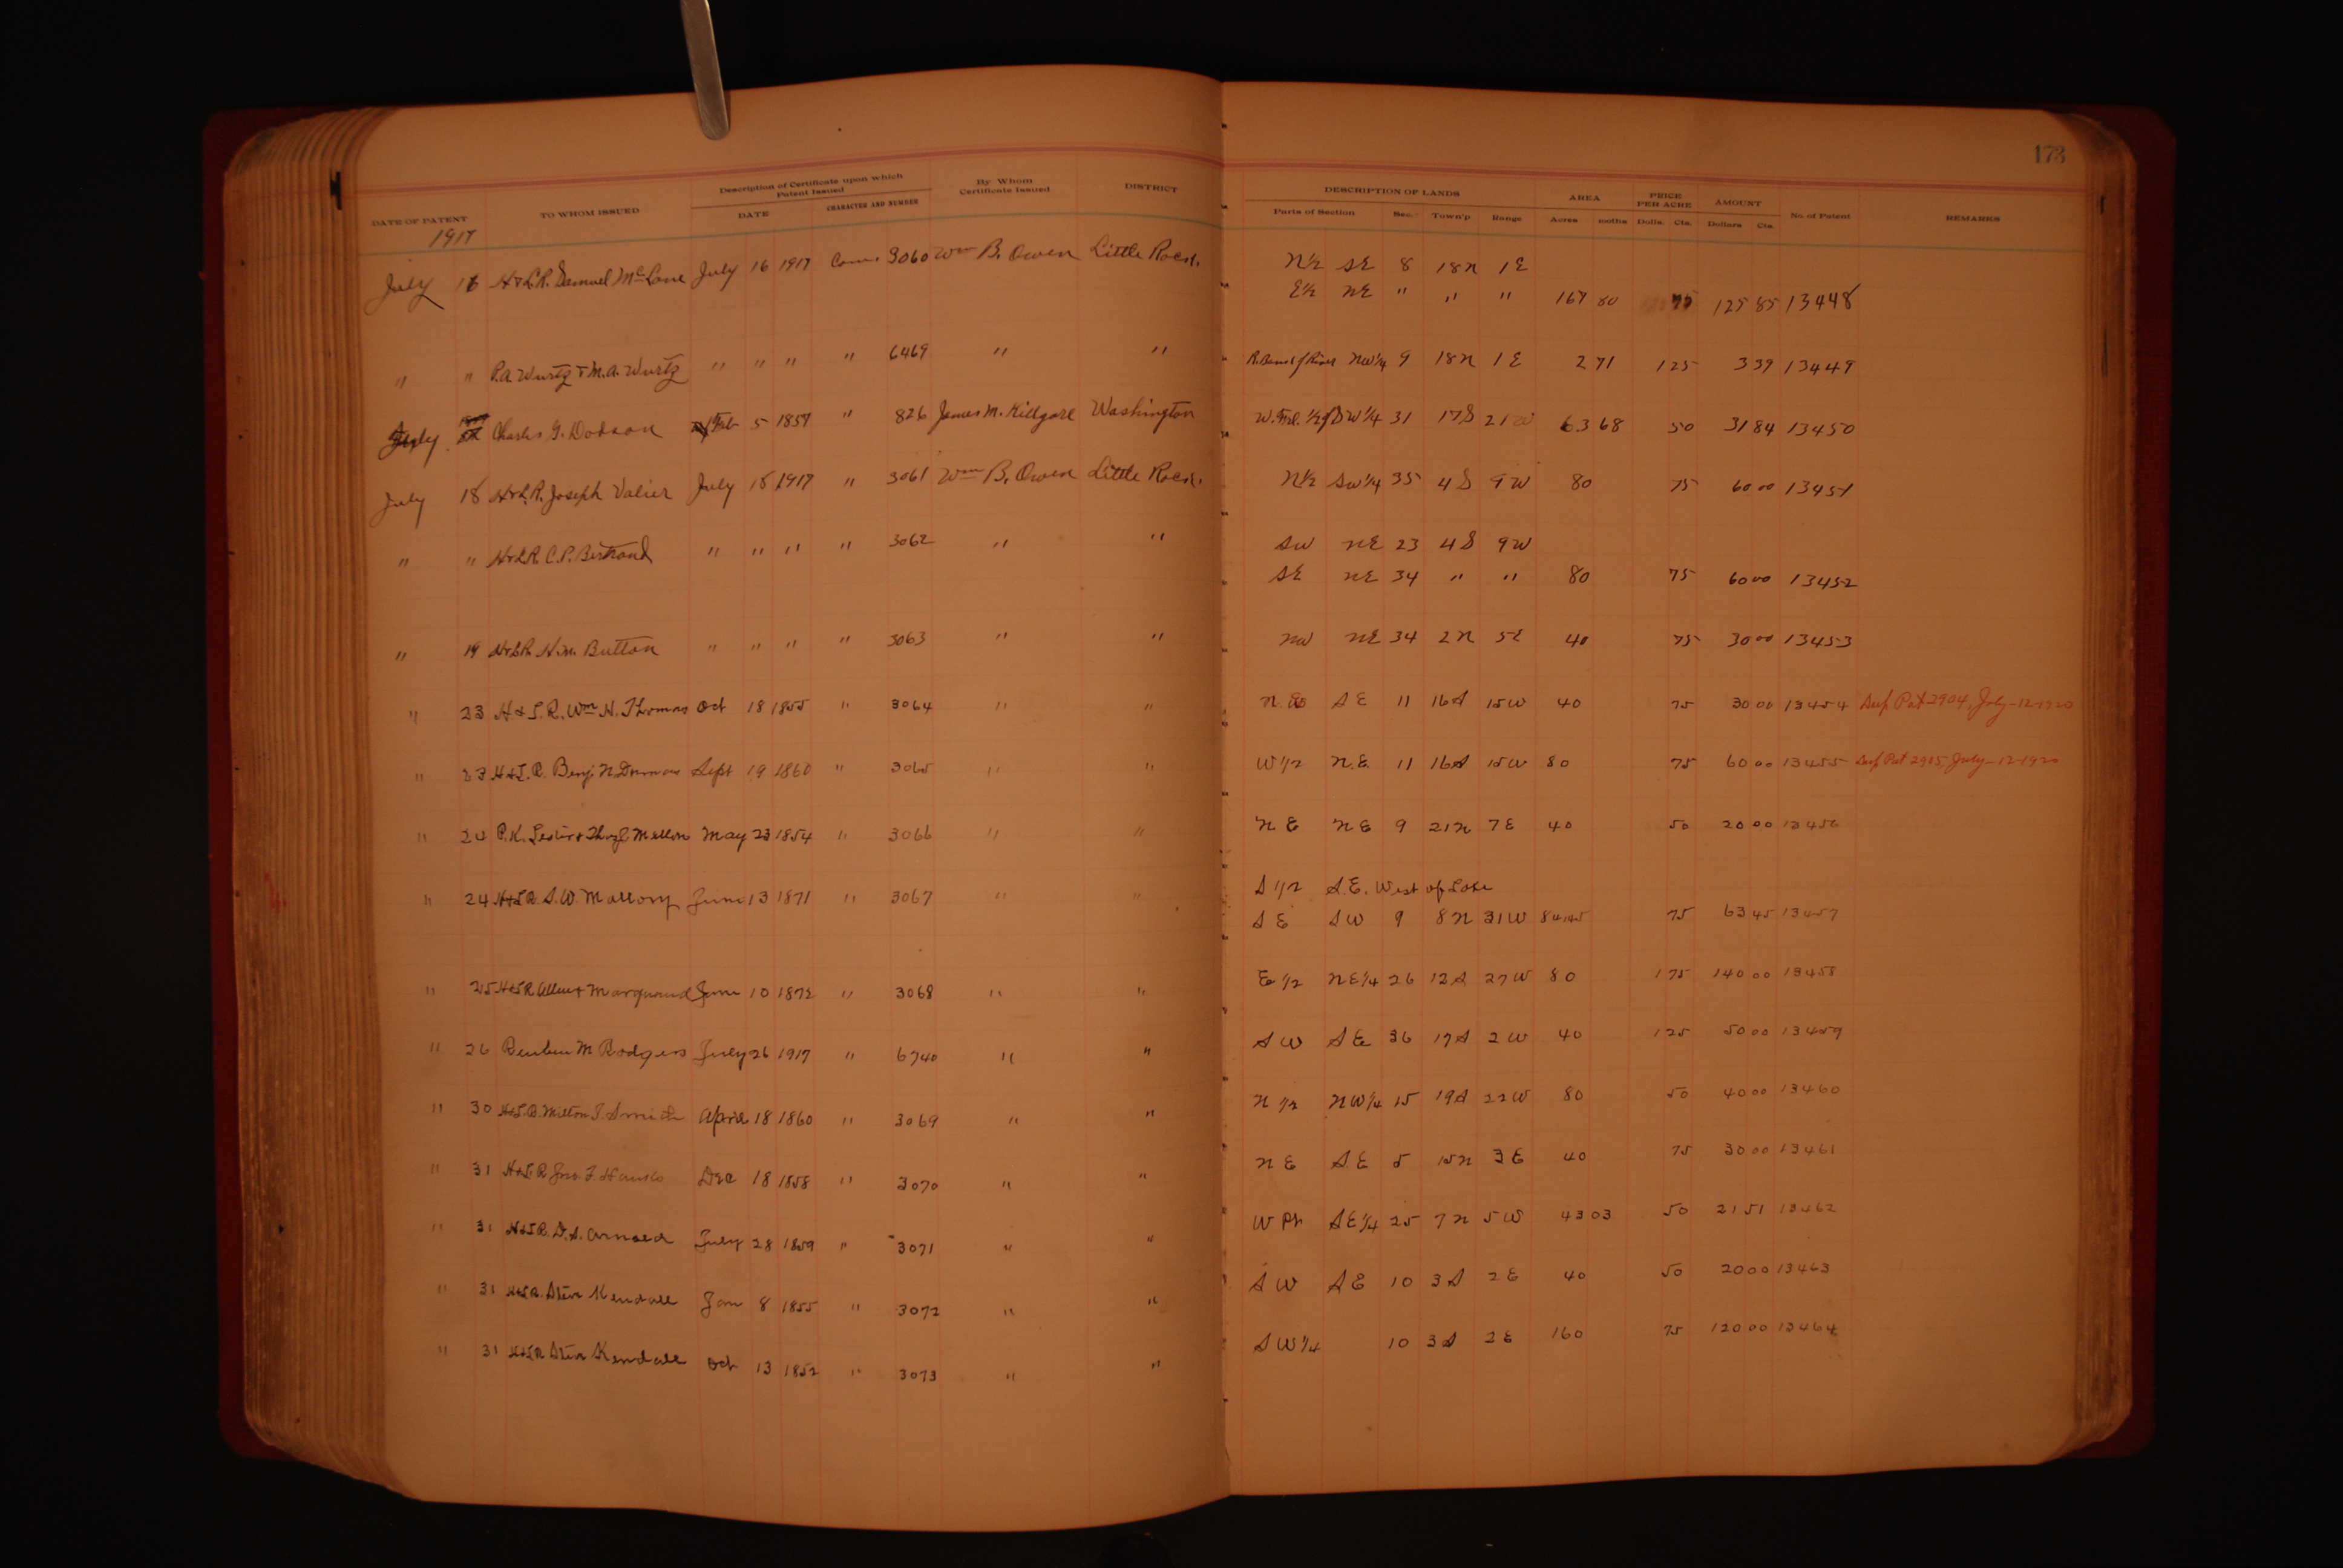 173
DATE OF PATENT TO WHOM ISSUED Description of Certificate upon which Patent Issued DATE CHARACTER AND NUMBER By Whom Certificate Issued DISTRICT DESCRIPTION OF LANDS Parts of Section Sec. Town'p Range AREA Acres moths PRICE PER ACRE Dolls. Cts. AMOUNT Dollars Cts. No. of Patent REMARKS
1917
July 16 H & L.R. Samuel McLane July 16 1917 Com. 3060 Wm B. Owen Little Rock. N½ SE 8 18N 1E
E½ NE " " " 167 80 75 125 85 13448
" " P.A. Wurtz & M.A. Wurtz " " " " 6469 " " R. Bend of River NW¼ 9 18N 1E 2 71 1 25 3 39 13449
July Charles G. Dodson Feb 5 1857 " 826 James M. Killgore Washington W. Frl. ½ of SW¼ 31 17S 21W 63 68 50 31 84 13450
July 18 H & L.R. Joseph Valier July 18 1917 " 3061 Wm B. Owen Little Rock. N½ SW¼ 35 4S 9W 80 75 60 00 13451
" " H & L.R. C.P. Bertrand " " " " 3062 " " SW NE 23 4S 9W
SE NE 34 " " 80 75 60 00 13452
" 19 H & L.R. H.M. Button " " " " 3063 " " NW NE 34 2N 5E 40 75 30 00 13453
" 23 H & L.R. Wm H. Thomas Oct 18 1855 " 3064 " " N.W SE 11 16S 15W 40 75 30 00 13454 Sup Pat 2904, July-12-1920
" 23 H & L.R. Benj. N. Dumas Sept 19 1860 " 3065 " " W 1/2 N.E. 11 16S 15W 80 75 60 00 13455 Sup Pat 2905, July-12-1920
" 24 P.K. Lester & Thos. C. Mellon May 23 1854 " 3066 " " NE NE 9 21N 7E 40 50 20 00 13456
" 24 H & L.R. S.W. Mallory June 13 1871 " 3067 " " S 1/2 S.E. West of Lake
SE SW 9 8N 31W 84.45 75 63 45 13457
" 25 H & L.R. Allen & Marquand June 10 1872 " 3068 " " E 1/2 NE¼ 26 12S 27W 80 1 75 140 00 13458
" 26 Reuben M Rodgers July 26 1917 " 6740 " " SW SE 36 17S 2W 40 1 25 50 00 13459
" 30 H & L.R. Milton T. Smith April 18 1860 " 3069 " " N 1/2 NW¼ 15 19S 22W 80 50 40 00 13460
" 31 H & L.R. Jno. F. Dec 18 1858 " 3070 " " NE SE 5 15N 3E 40 75 30 00 13461
" 31 H & L.R. D.S. Arnold July 28 1859 " 3071 " " W Pt SE¼ 25 7N 5W 43 03 50 21 51 13462
" 31 H & L.R. Steve Kendall Jan 8 1855 " 3072 " " SW SE 10 3S 2E 40 50 20 00 13463
" 31 H & L.R. Steve Kendall Oct 13 1852 " 3073 " " SW¼ 10 3S 2E 160 75 120 00 13464